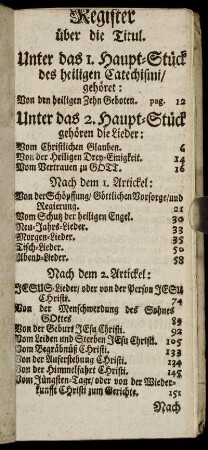 Register
über die Titul.
Unter das 1. Haupt-Stück
des heiligen Catechismi/
gehöret:
Von den heiligen Zehn Geboten. pag. 12
Unter das 2. Haupt-Stück
gehören die Lieder:
Vom Christlichen Glauben. 6
Von der Heiligen Drey-Einigkeit. 14
Vom Vertrauen zu GOTT. 16
Nach dem 1. Artickel:
Von der Schöpffung/ Göttlichen Vorsorge/und
Regierung. 21
Vom Schutz der heiligen Engel. 30
Neu-Jahrs-Lieder. 33
Morgen-Lieder. 35
Tisch-Lieder. 50
Abend-Lieder. 58
Nach dem 2. Artickel:
JESUS-Lieder/ oder von der Person JESU
CHristi. 74
Von der Menschwerdung des Sohnes
GOttes 89
Von der Geburt JEsu Christi. 92
Vom Leiden und Sterben JEsu Christi. 105
Vom Begräbnüß CHristi. 133
Von der Auferstehung CHristi. 134
Von der Himmelfahrt CHristi. 145
Vom Jüngsten-Tage/ oder von der Wieder-
kunfft CHristi zum Gerichte. 151
Nach